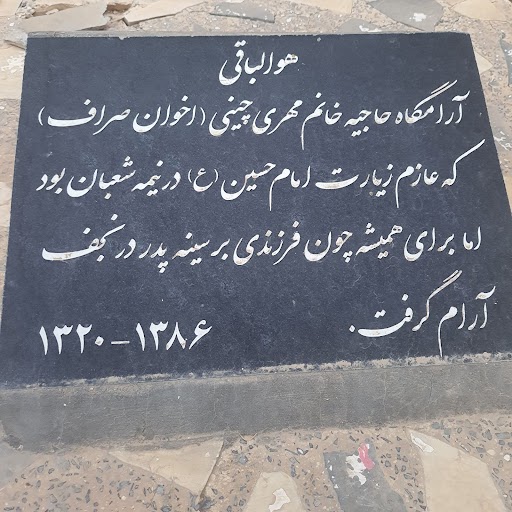 هوالباقی
آرامگاه حاجیه خانم مهری چینی (اخوان صراف)
که عازم زیارت امام حسین (ع) در نیمه شعبان بود
اما برای همیشه چون فرزندی بر سینه پدر در نجف
آرام گرفت.
۱۳۲۰-۱۳۸۶